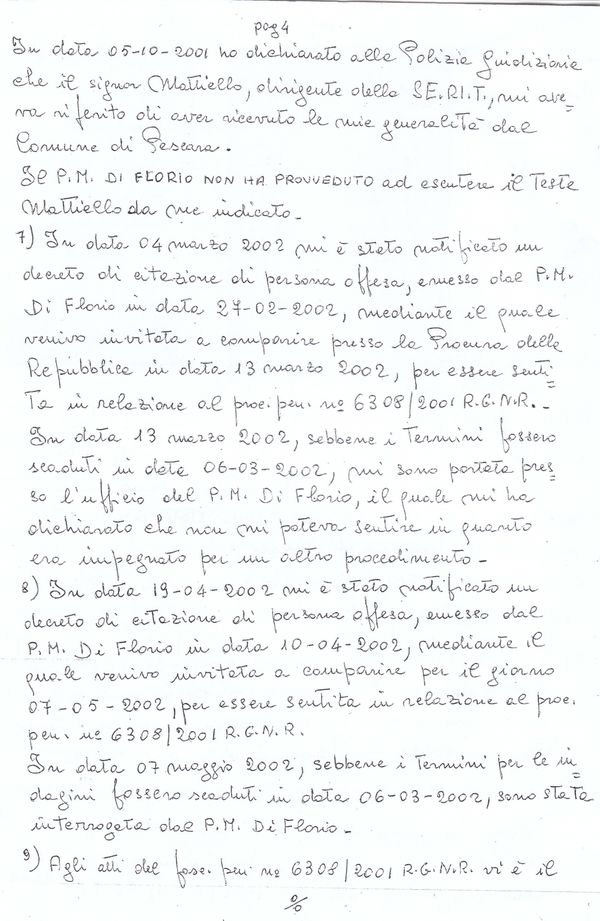 pag 4
In data 05-10-2001 ho dichiarato alla Polizia Giudiziaria
che il signor Mattiello, dirigente della SE.RI.T., mi ave=
va riferito di aver ricevuto le mie generalità dal
Comune di Pescara.
Il P.M. DI FLORIO NON HA PROVVEDUTO ad escutere il Teste
Mattiello da me indicato.
7) In data 04 marzo 2002 mi è stato notificato un
decreto di citazione di persona offesa, emesso dal P.M.
Di Florio in data 27-02-2002, mediante il quale
venivo invitata a comparire presso la Procura della
Repubblica in data 13 marzo 2002, per essere senti=
Ta in relazione al proc. pen. nº 6308/2001 R.G.N.R. -
In data 13 marzo 2002, sebbene i Termini fossero
scaduti in data 06-03-2002, mi sono portata pres=
so l'ufficio del P.M. Di Florio, il quale mi ha
dichiarato che non mi poteva sentire in quanto
era impegnato per un altro procedimento -
8) In data 19-04-2002 mi è stato notificato un
decreto di citazione di persona offesa, emesso dal
P.M. Di Florio in data 10-04-2002, mediante il
quale venivo invitata a comparire per il giorno
07-05-2002, per essere sentita in relazione al proc.
pen. nº 6308/2001 R.G.N.R.
In data 07 maggio 2002, sebbene i Termini per le in=
dagini fossero scaduti in data 06-03-2002, sono stata
interrogata dal P.M. Di Florio -
9) Agli atti del fasc. pen. nº 6308/2001 R.G.N.R. vi è il
%